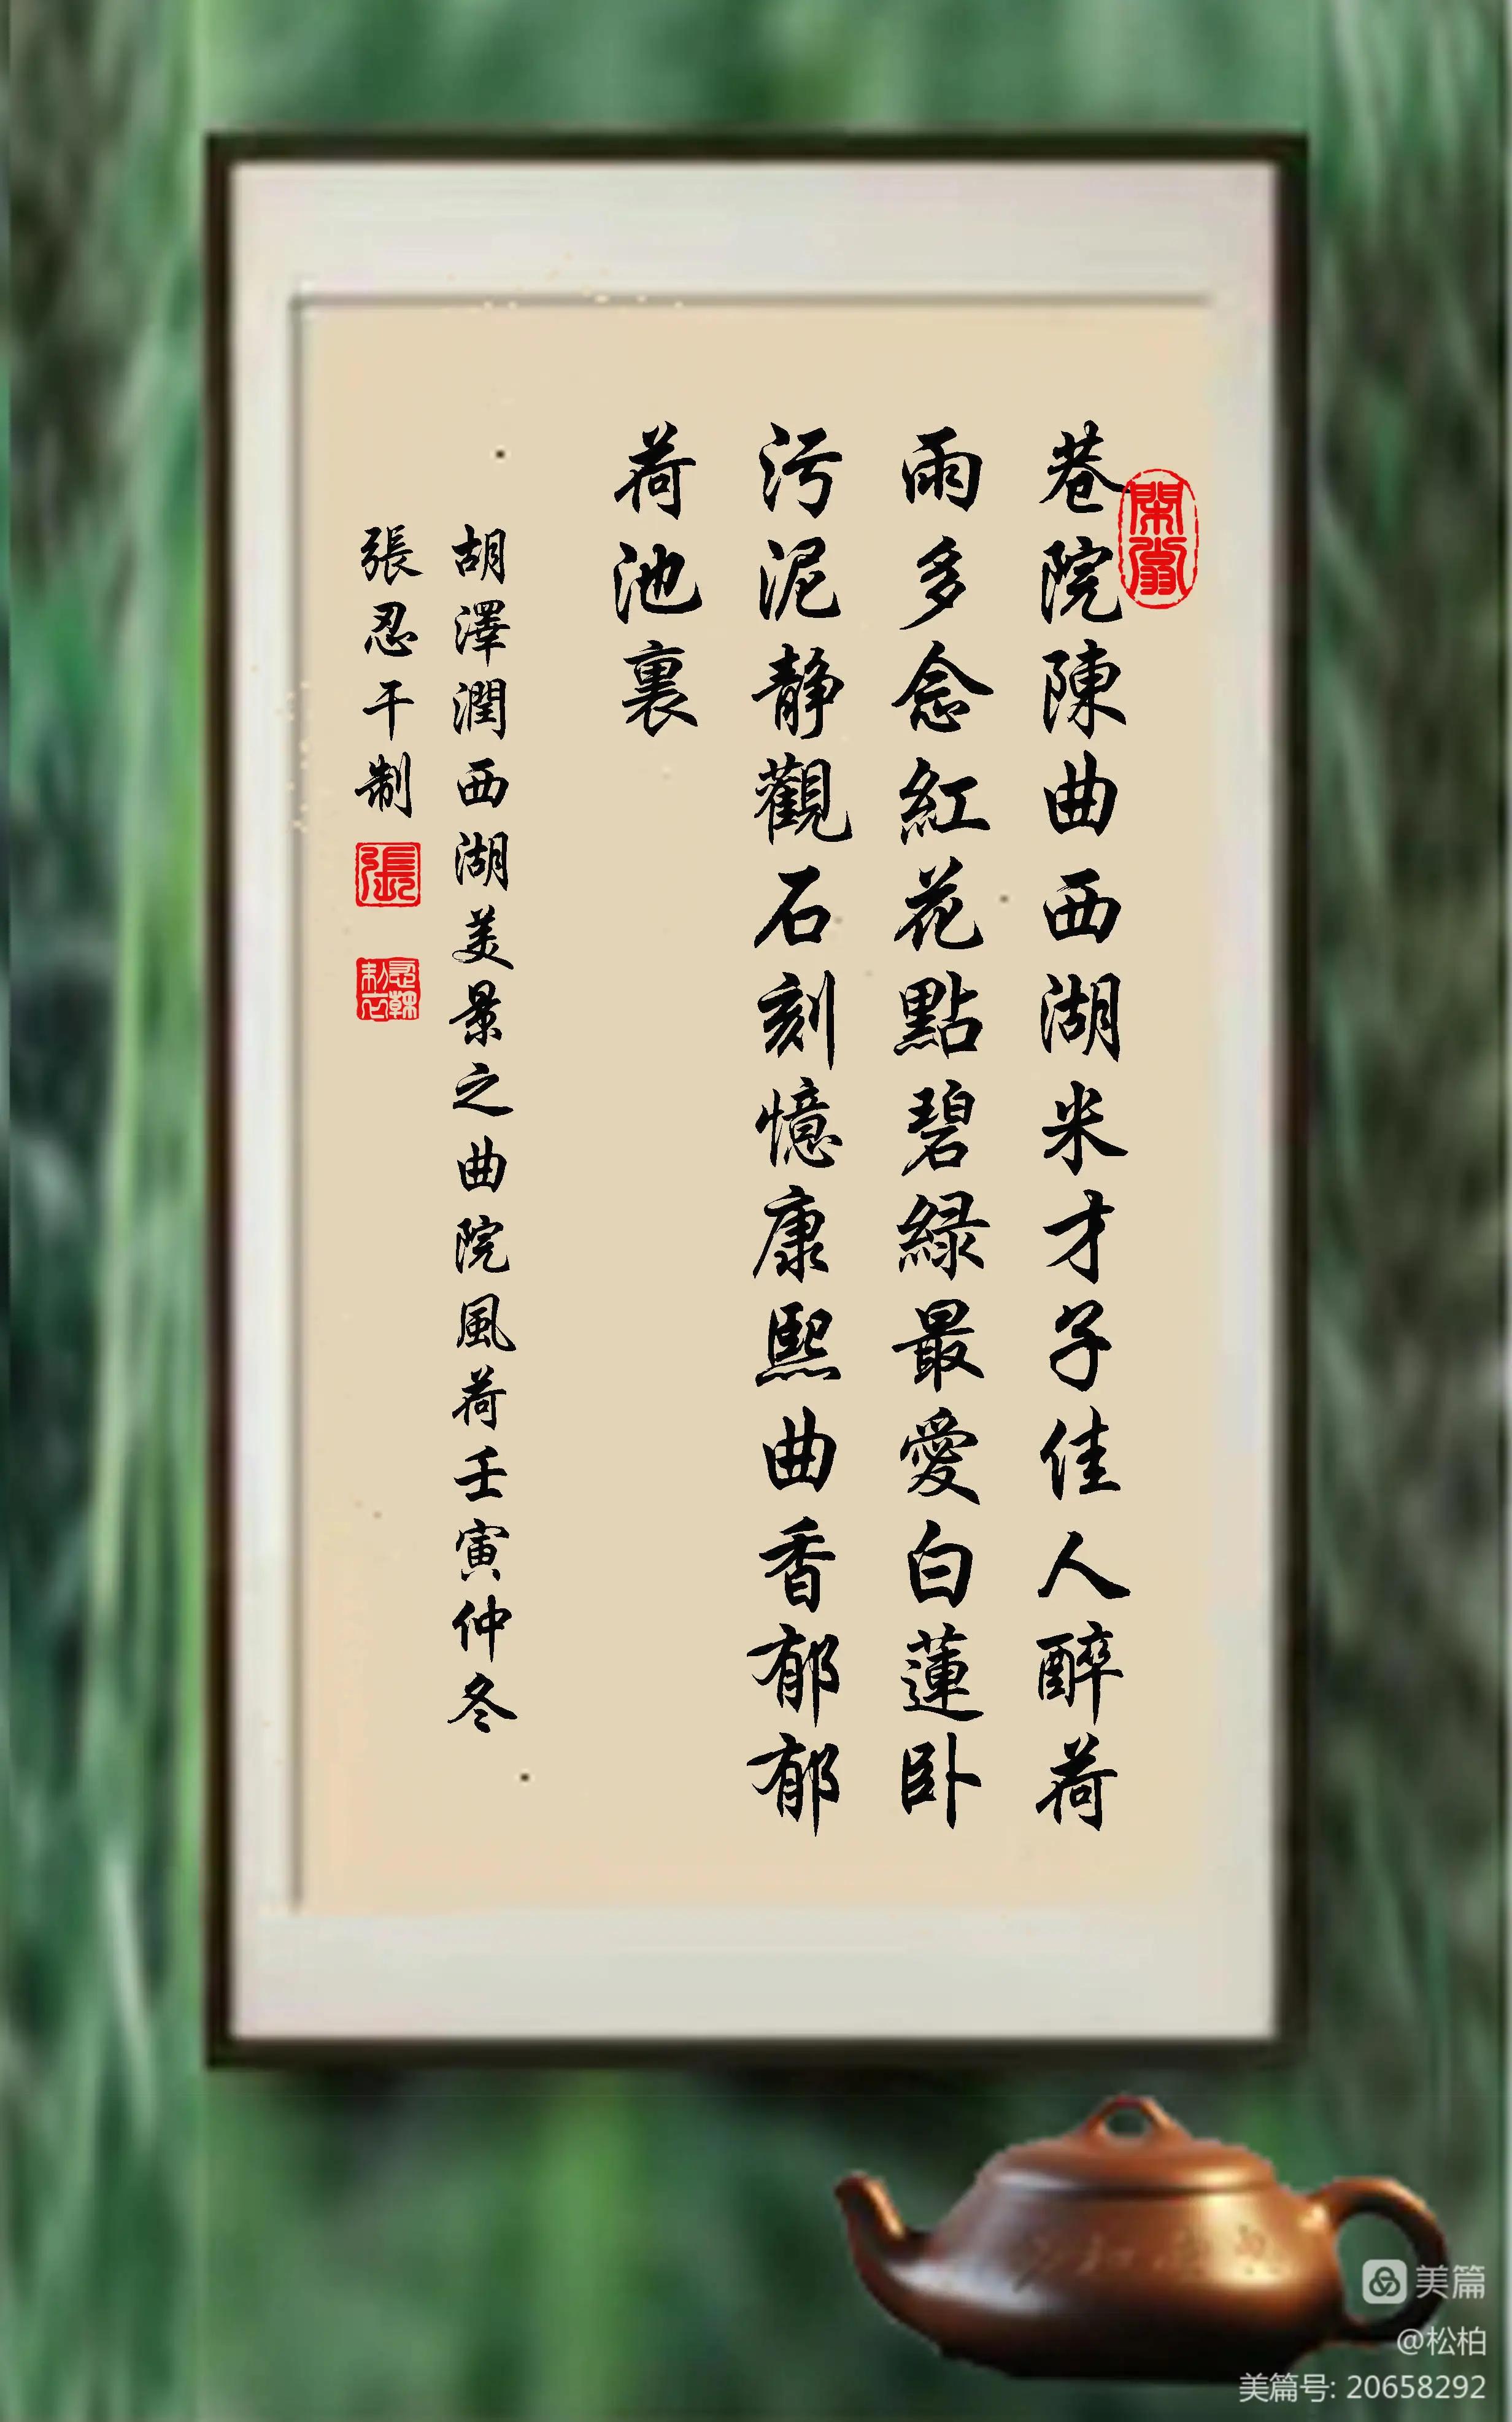 巷院陳曲西湖米才子佳人醉荷
雨多念紅花點碧緑最愛白蓮卧
污泥静觀石刻憶康熙曲香郁郁
荷池裏
胡澤潤西湖美景之曲院風荷壬寅仲冬
張忍干制
張
美篇
@松柏
美篇号: 20658292